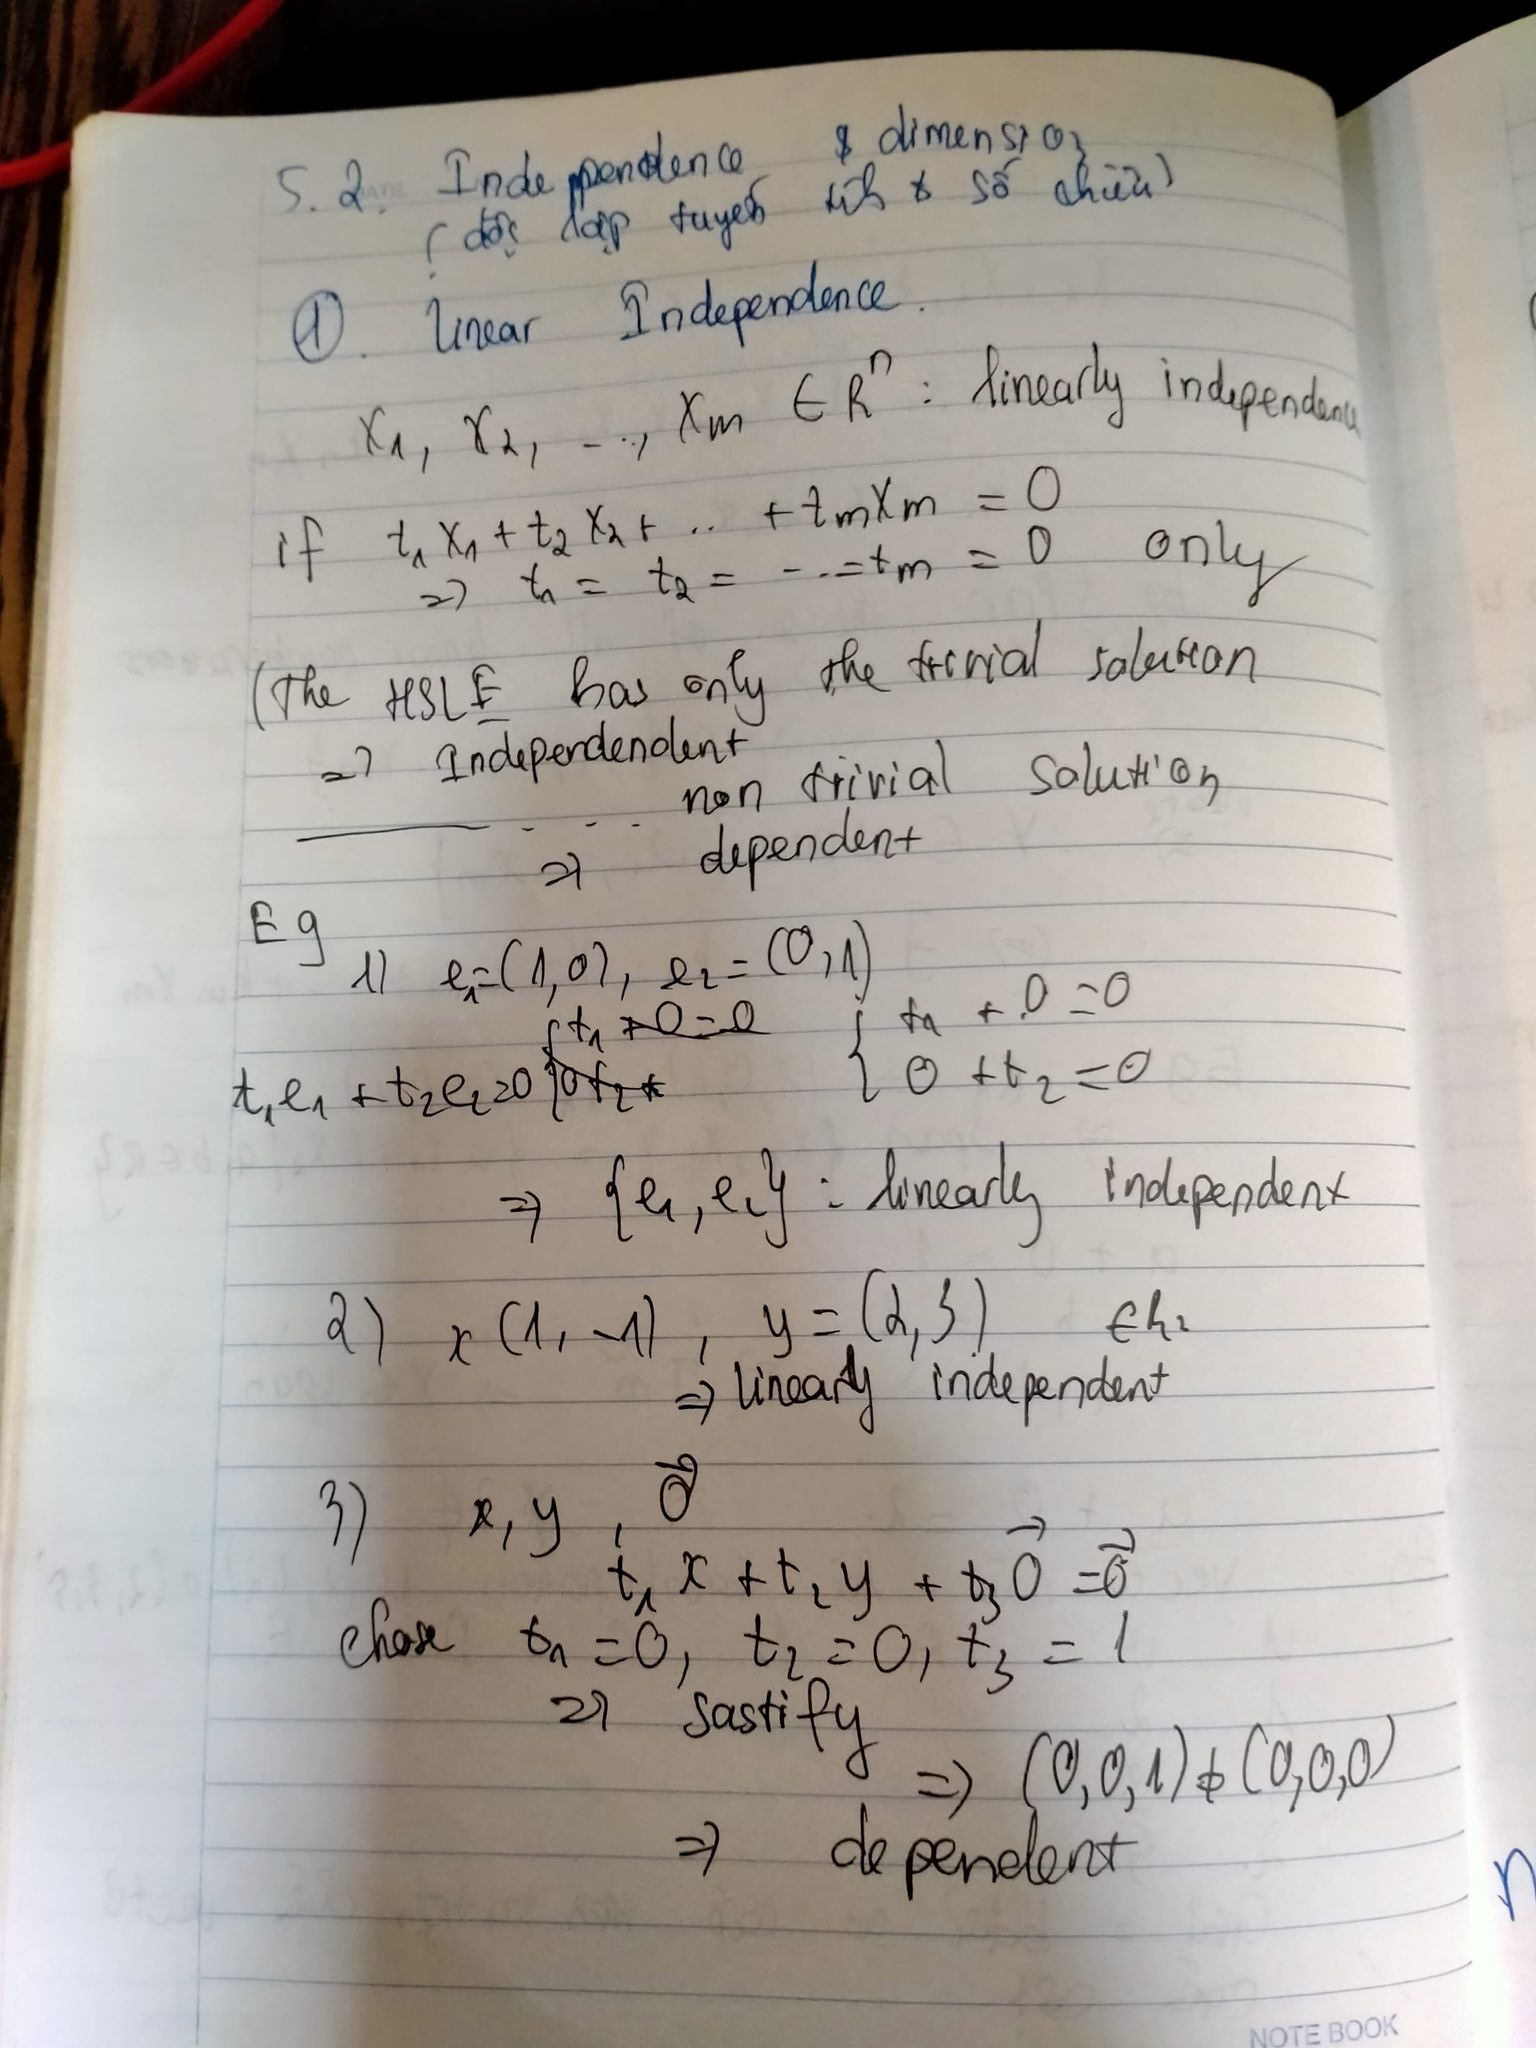 5.2. Independence & dimension
(độc lập tuyến tính & số chiều)
①. linear Independence.
x₁, x₂, ..., xₘ ∈ Rⁿ : linearly independence
if t₁x₁ + t₂x₂ + .. + tₘxₘ = 0
=> t₁ = t₂ = ... = tₘ = 0 only
(The HSLE has only the trivial solution
=> Independendent
non trivial solution
=> dependent
Eg
1) e₁=(1,0), e₂ = (0,1)
{t₁ + 0 = 0 { t₁ + 0 = 0
t₁e₁ + t₂e₂=0 0 + t₂ = 0
=> {e₁, e₂} : linearly independent
2) x(1, -1), y = (2,3) ∈R²
=> linearly independent
3) x, y, 0⃗
t₁x + t₂y + t₃0⃗ = 0⃗
chose t₁ = 0, t₂ = 0, t₃ = 1
=> sastify
=> (0,0,1) ≠ (0,0,0)
=> dependent
NOTE BOOK
n